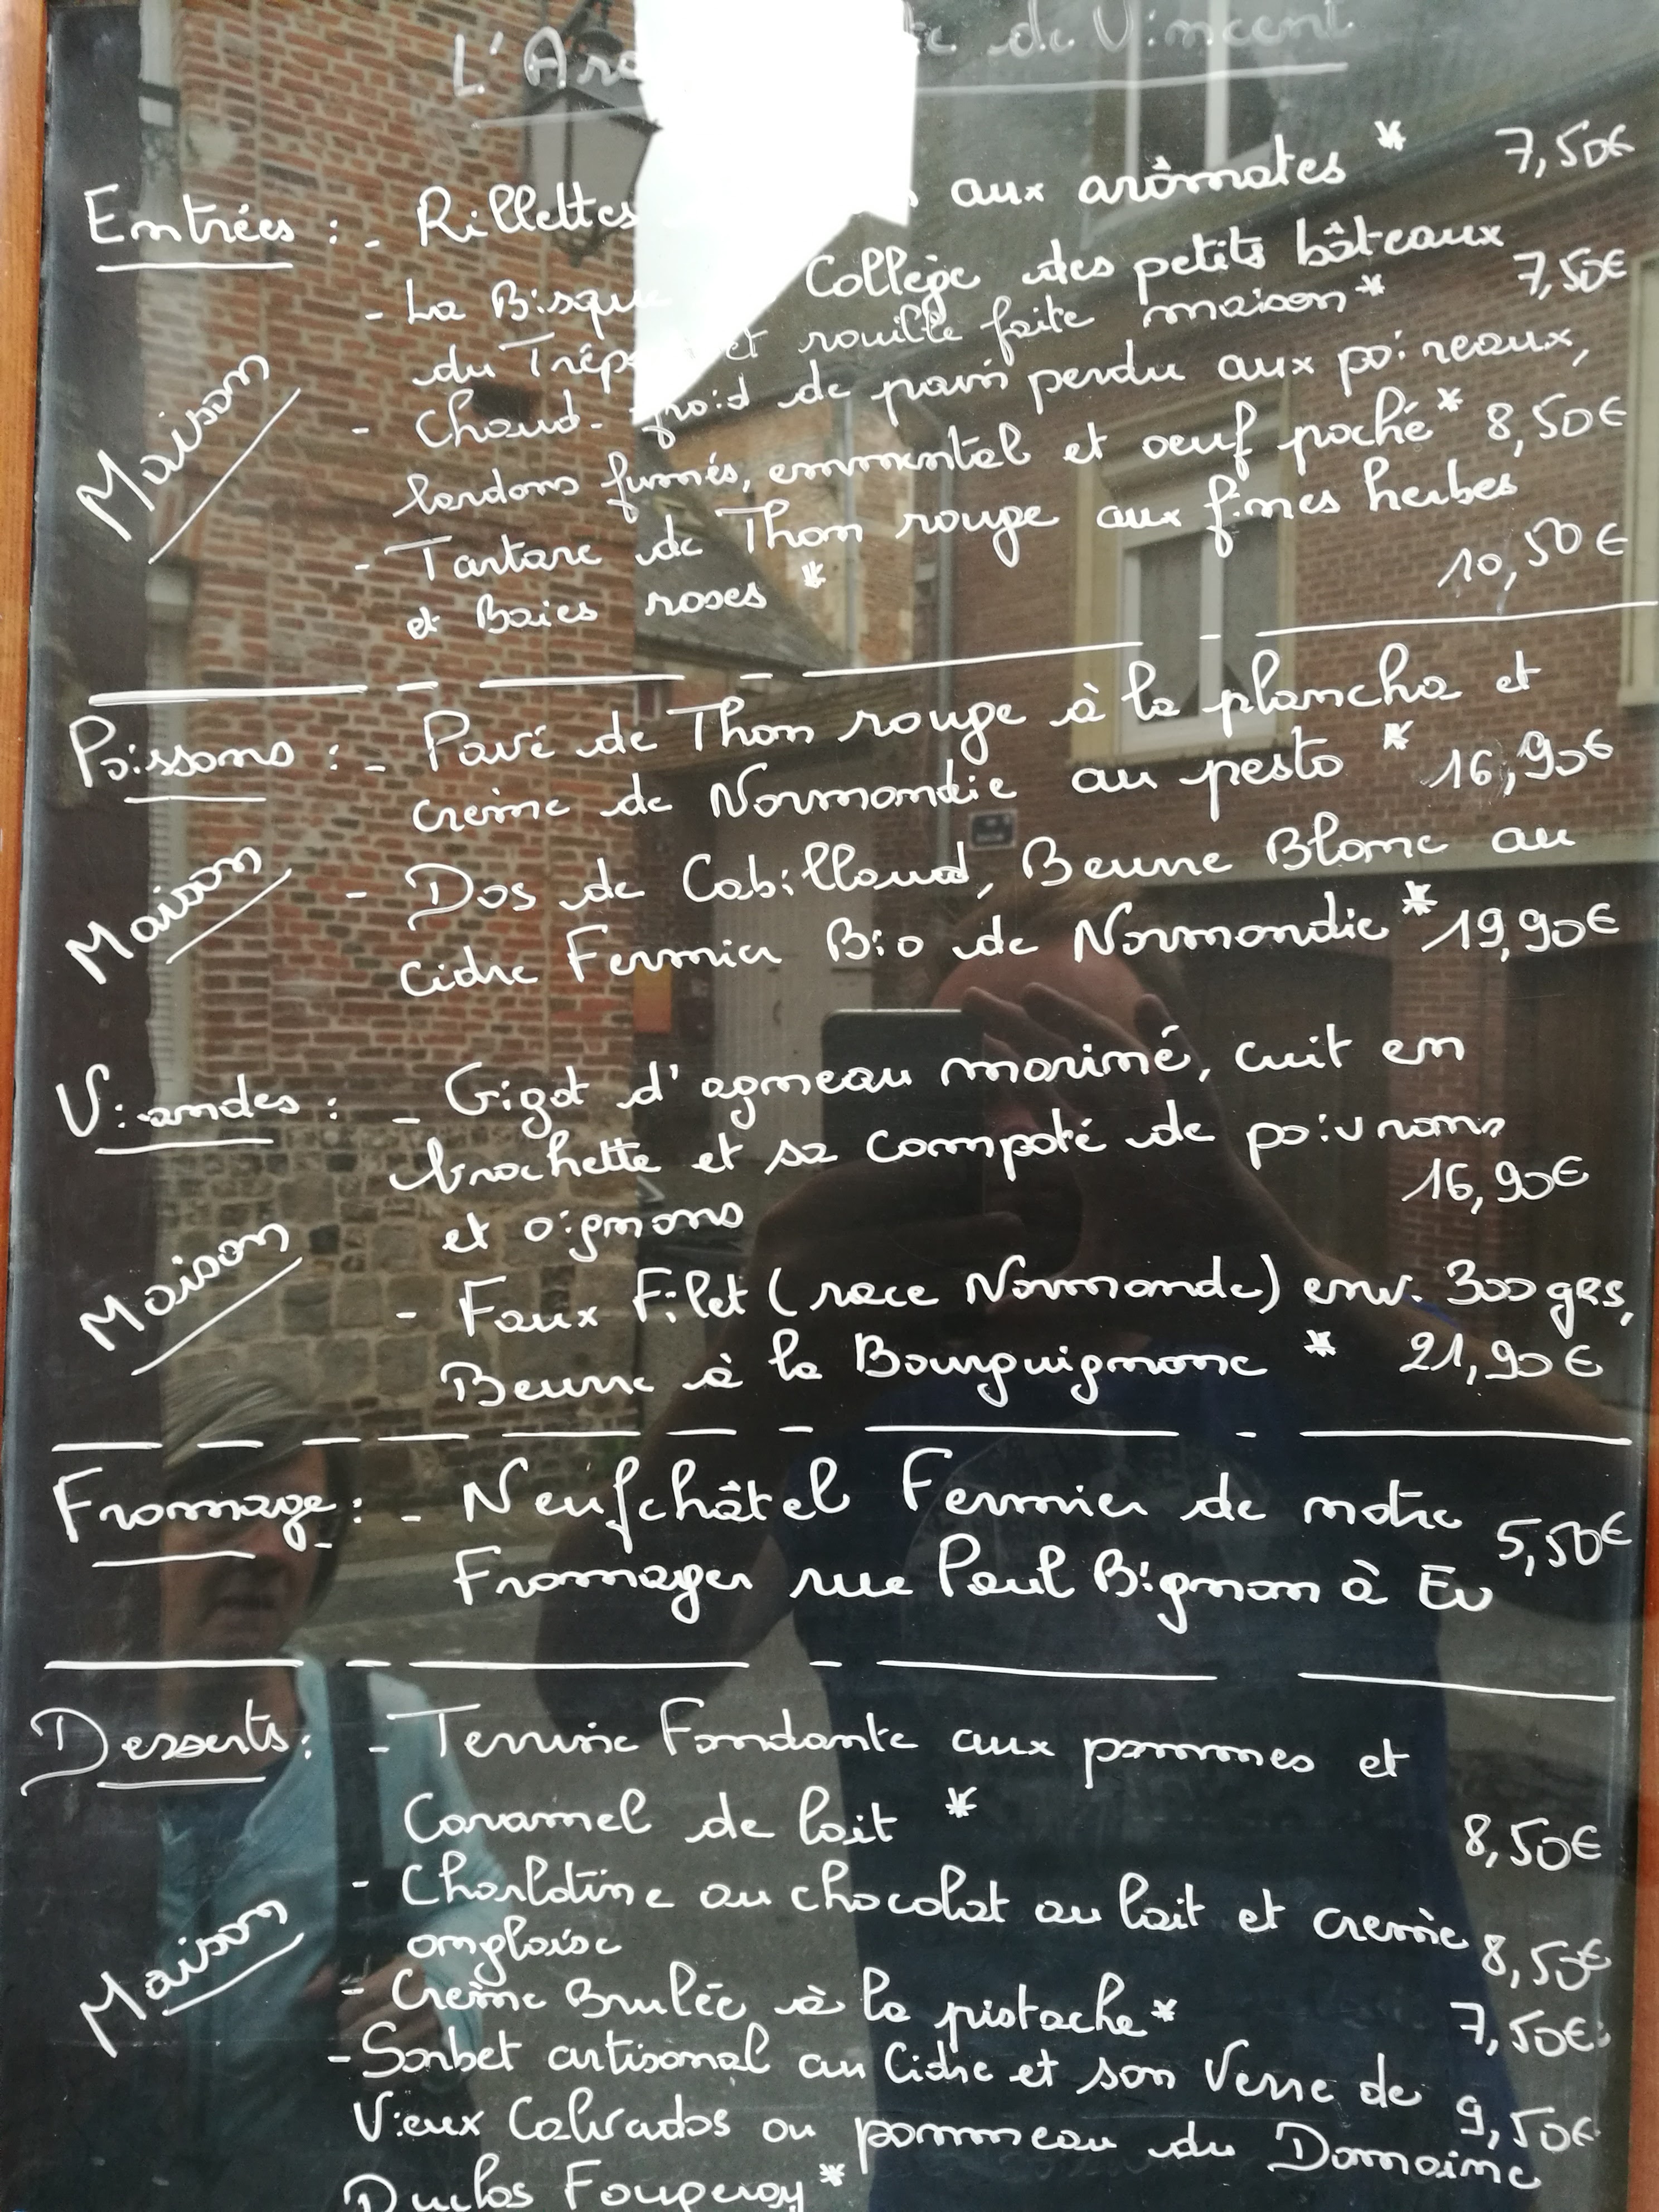 de Vincent
Entrées : - Rillettes aux arômates * 7,50€
- La Bisque Collège des petits bâteaux
du et rouille faite maison * 7,50€
- Chaud-froid de pain perdu aux poireaux,
lardons fumés, emmental et oeuf poché * 8,50€
- Tartare de Thon rouge aux fines herbes
et Baies roses * 10,50€
Maison
Poissons : - Pavé de Thon rouge à la plancha et
crème de Normandie au pesto * 16,90€
- Dos de Cabillaud, Beurre Blanc au
cidre Fermier Bio de Normandie * 19,90€
Maison
Viandes : - Gigot d'agneau mariné, cuit en
brochette et sa compoté de poivrons
et oignons 16,90€
- Faux Filet (race Normande) env. 300 grs,
Beurre à la Bourguignonne * 21,90€
Maison
Fromage : - Neufchâtel Fermier de notre
Fromager rue Paul Bignon à Eu 5,50€
Desserts : - Terrine Fondante aux pommes et
Caramel de lait * 8,50€
- Charldtine au chocolat au lait et crème
anglaise 8,50€
- Crème Brulée à la pistache * 7,50€
- Sorbet artisanal au Cidre et son Verre de
Vieux Calvados ou pommeau du Domaine 9,50€
Duclos Fougeray *
Maison